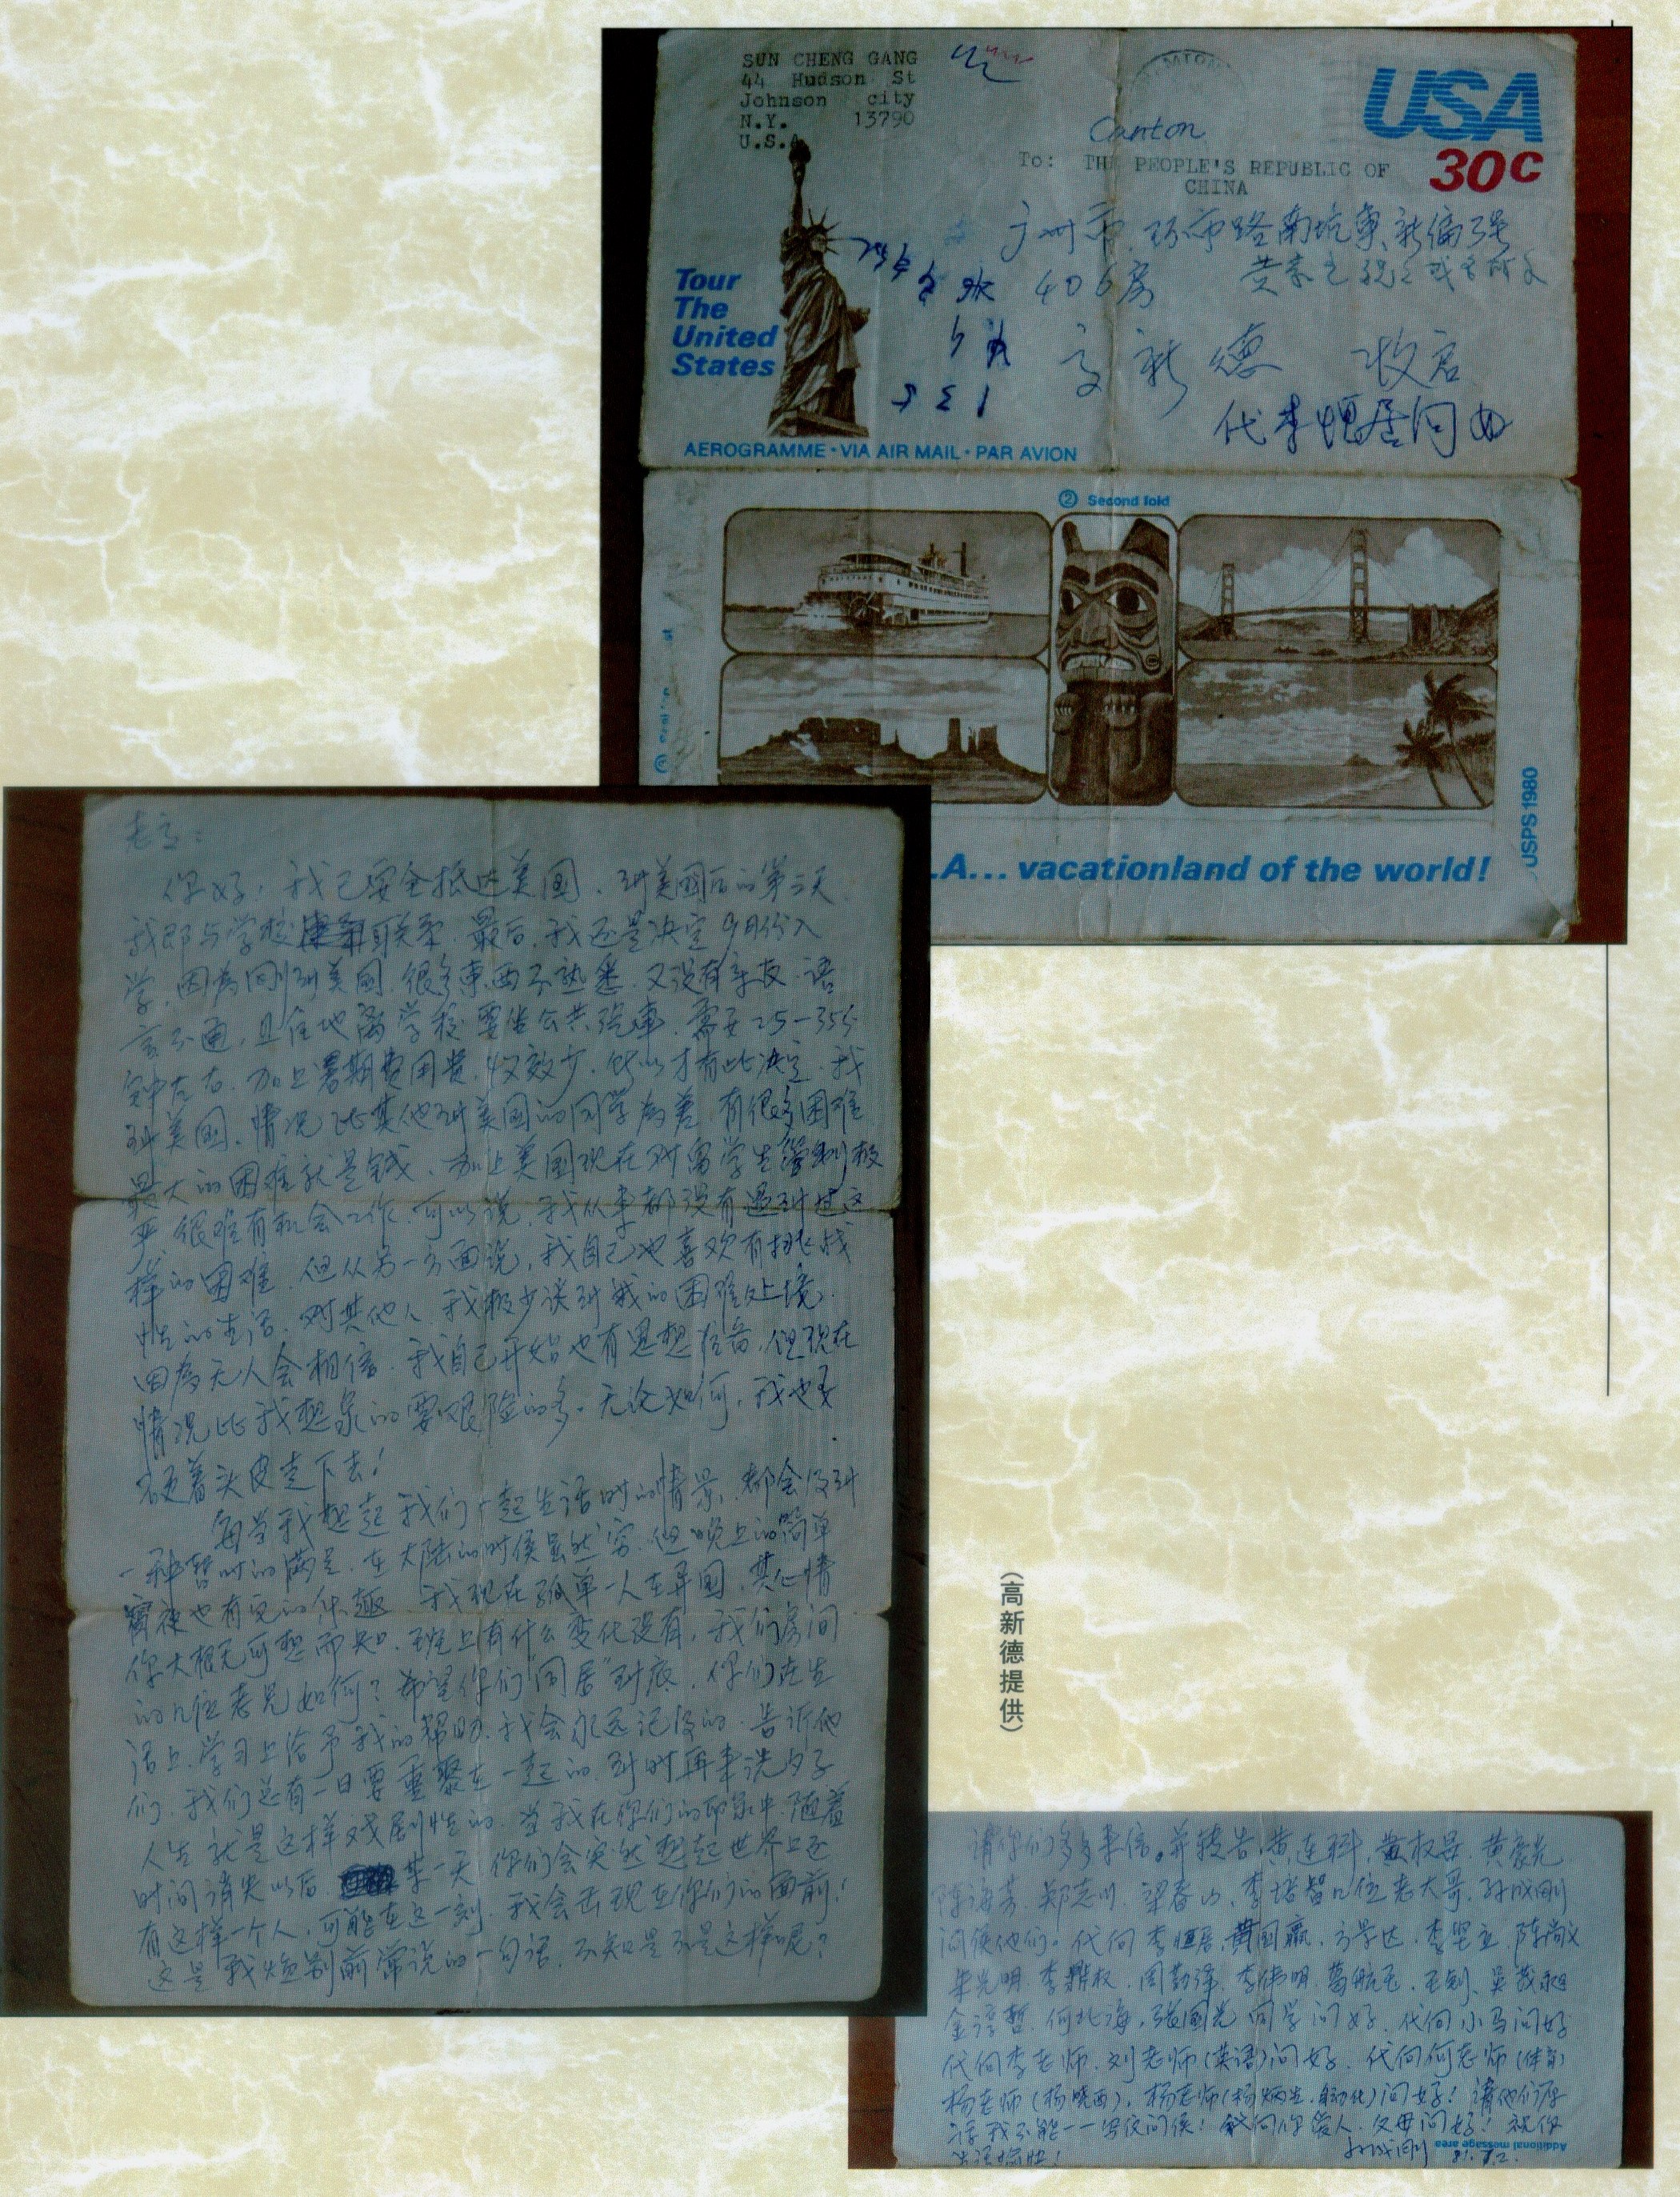 SUN CHENG GANG
44 Hudson St
Johnson city
N.Y. 13790
U.S.A
USA
30c
Canton
To: THE PEOPLE'S REPUBLIC OF
CHINA
广州市
406房
高新德 收启
代李恒居问好
Tour
The
United
States
AEROGRAMME · VIA AIR MAIL · PAR AVION
② Second fold
USPS 1980
.A... vacationland of the world!
老高:
你好,我已安全抵达美国,到美国后的第二天
我即与学校联系,最后,我还是决定9月份入
学,因為刚到美國,很多東西不熟悉,又没有亲友,语
言不通,且住地离学校要坐公共汽車,需要25-35分
钟左右,加上暑期费用贵,收效少,所以才有此决定,我
到美國,情况比其他到美国的同学為差,有很多困难
最大的困难就是钱,加上美国现在对留学生管制极
严,很难有机会工作,可以说,我从来都没有遇到过这
样的困难,但从另一方面说,我自己也喜欢有挑战
性的生活,对其他人,我极少谈到我的困难处境,
因為无人会相信,我自己开始也有思想准备,但现在
情况比我想象的要艰险的多。无论如何,我也要
硬着头皮走下去!
每当我想起我们一起生活时的情景,都会得到
一种暂时的满足,在大陆的时候虽然穷,但晚上的简单
宵夜也有它的乐趣,我现在孤单一人在异国,其心情
你大概完可想而知,班上有什么变化没有,我们房间
的几位老兄如何?希望你们"同居"到底,你们在生
活上,学习上给予我的帮助,我会永远记得的,告诉他
们,我们总有一日要重聚在一起的,到时再来
人生就是这样戏剧性的,当我在你们的印象中,随着
时间消失以后,某一天,你们会突然想起世界上还
有这样一个人,可能在这一刻,我会出现在你们的面前!
这是我临别前常说的一句话,不知是不是这样呢?
(高新德提供)
请你们多多来信。并转告黄连科,黄权
陈海芳,郑志川,梁春山,李培智几位老大哥,孙成刚
问侯他们。代向李恒居,黄国赢,方学达,李坚立,陈尚文
朱光明,李鼎权,周勤泽,李伟明,葛航
何北海,张國光同学问好,代问小马问好
代向李老师,刘老师(英语)问好,代向何老师(体育)
杨老师(杨晓西),杨老师(杨炳生,自动化)问好!请他们原
谅我不能一一写信问侯!代问你爱人,父母问好!祝你
生活愉快!
孙成刚
Additional message area